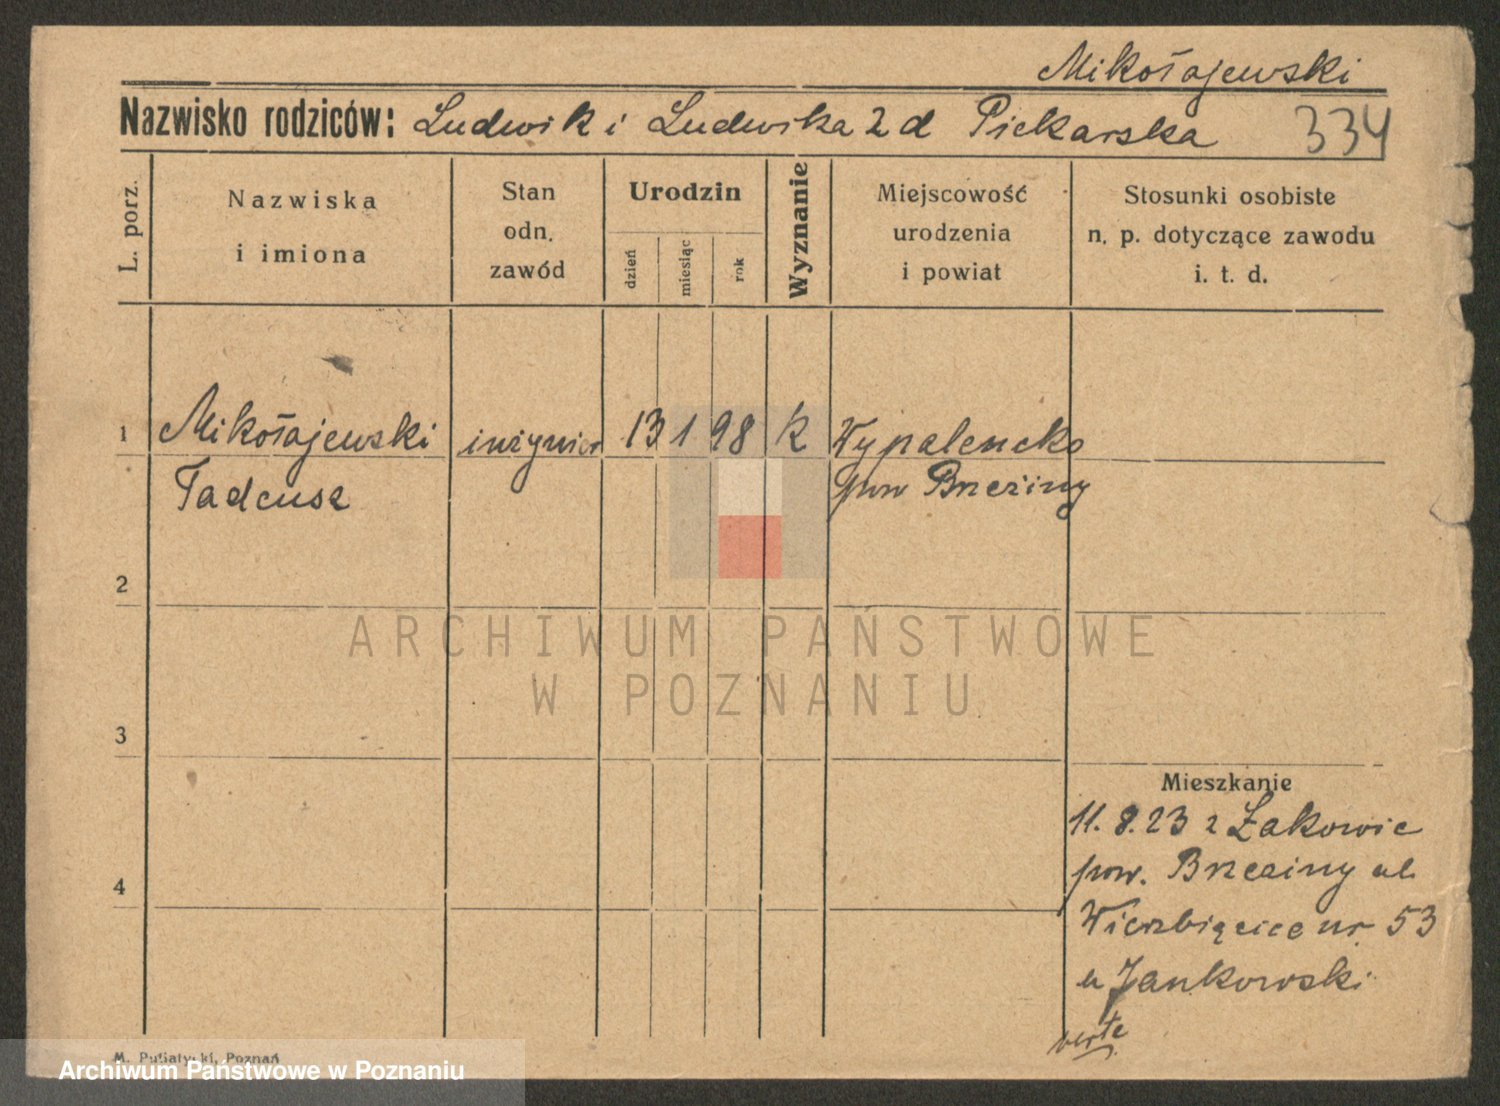 Mikołajewski
Nazwisko rodziców: Ludwik i Ludwika z d Piekarska 334
L. porz.
Nazwiska
i imiona
Stan
odn.
zawód
Urodzin
dzień
miesiąc
rok
Wyznanie
Miejscowość
urodzenia
i powiat
Stosunki osobiste
n. p. dotyczące zawodu
i. t. d.
1 Mikołajewski inżynier 13 1 98 k Wypalencko
Tadeusz pow Brzeziny
2
ARCHIWUM PAŃSTWOWE
W POZNANIU
3
Mieszkanie
11.8.23 z Żakowic
4 pow. Brzeziny ul.
Wierzbięcice nr 53
u Jankowski
verte
M. Putiatycki, Poznań
Archiwum Państwowe w Poznaniu